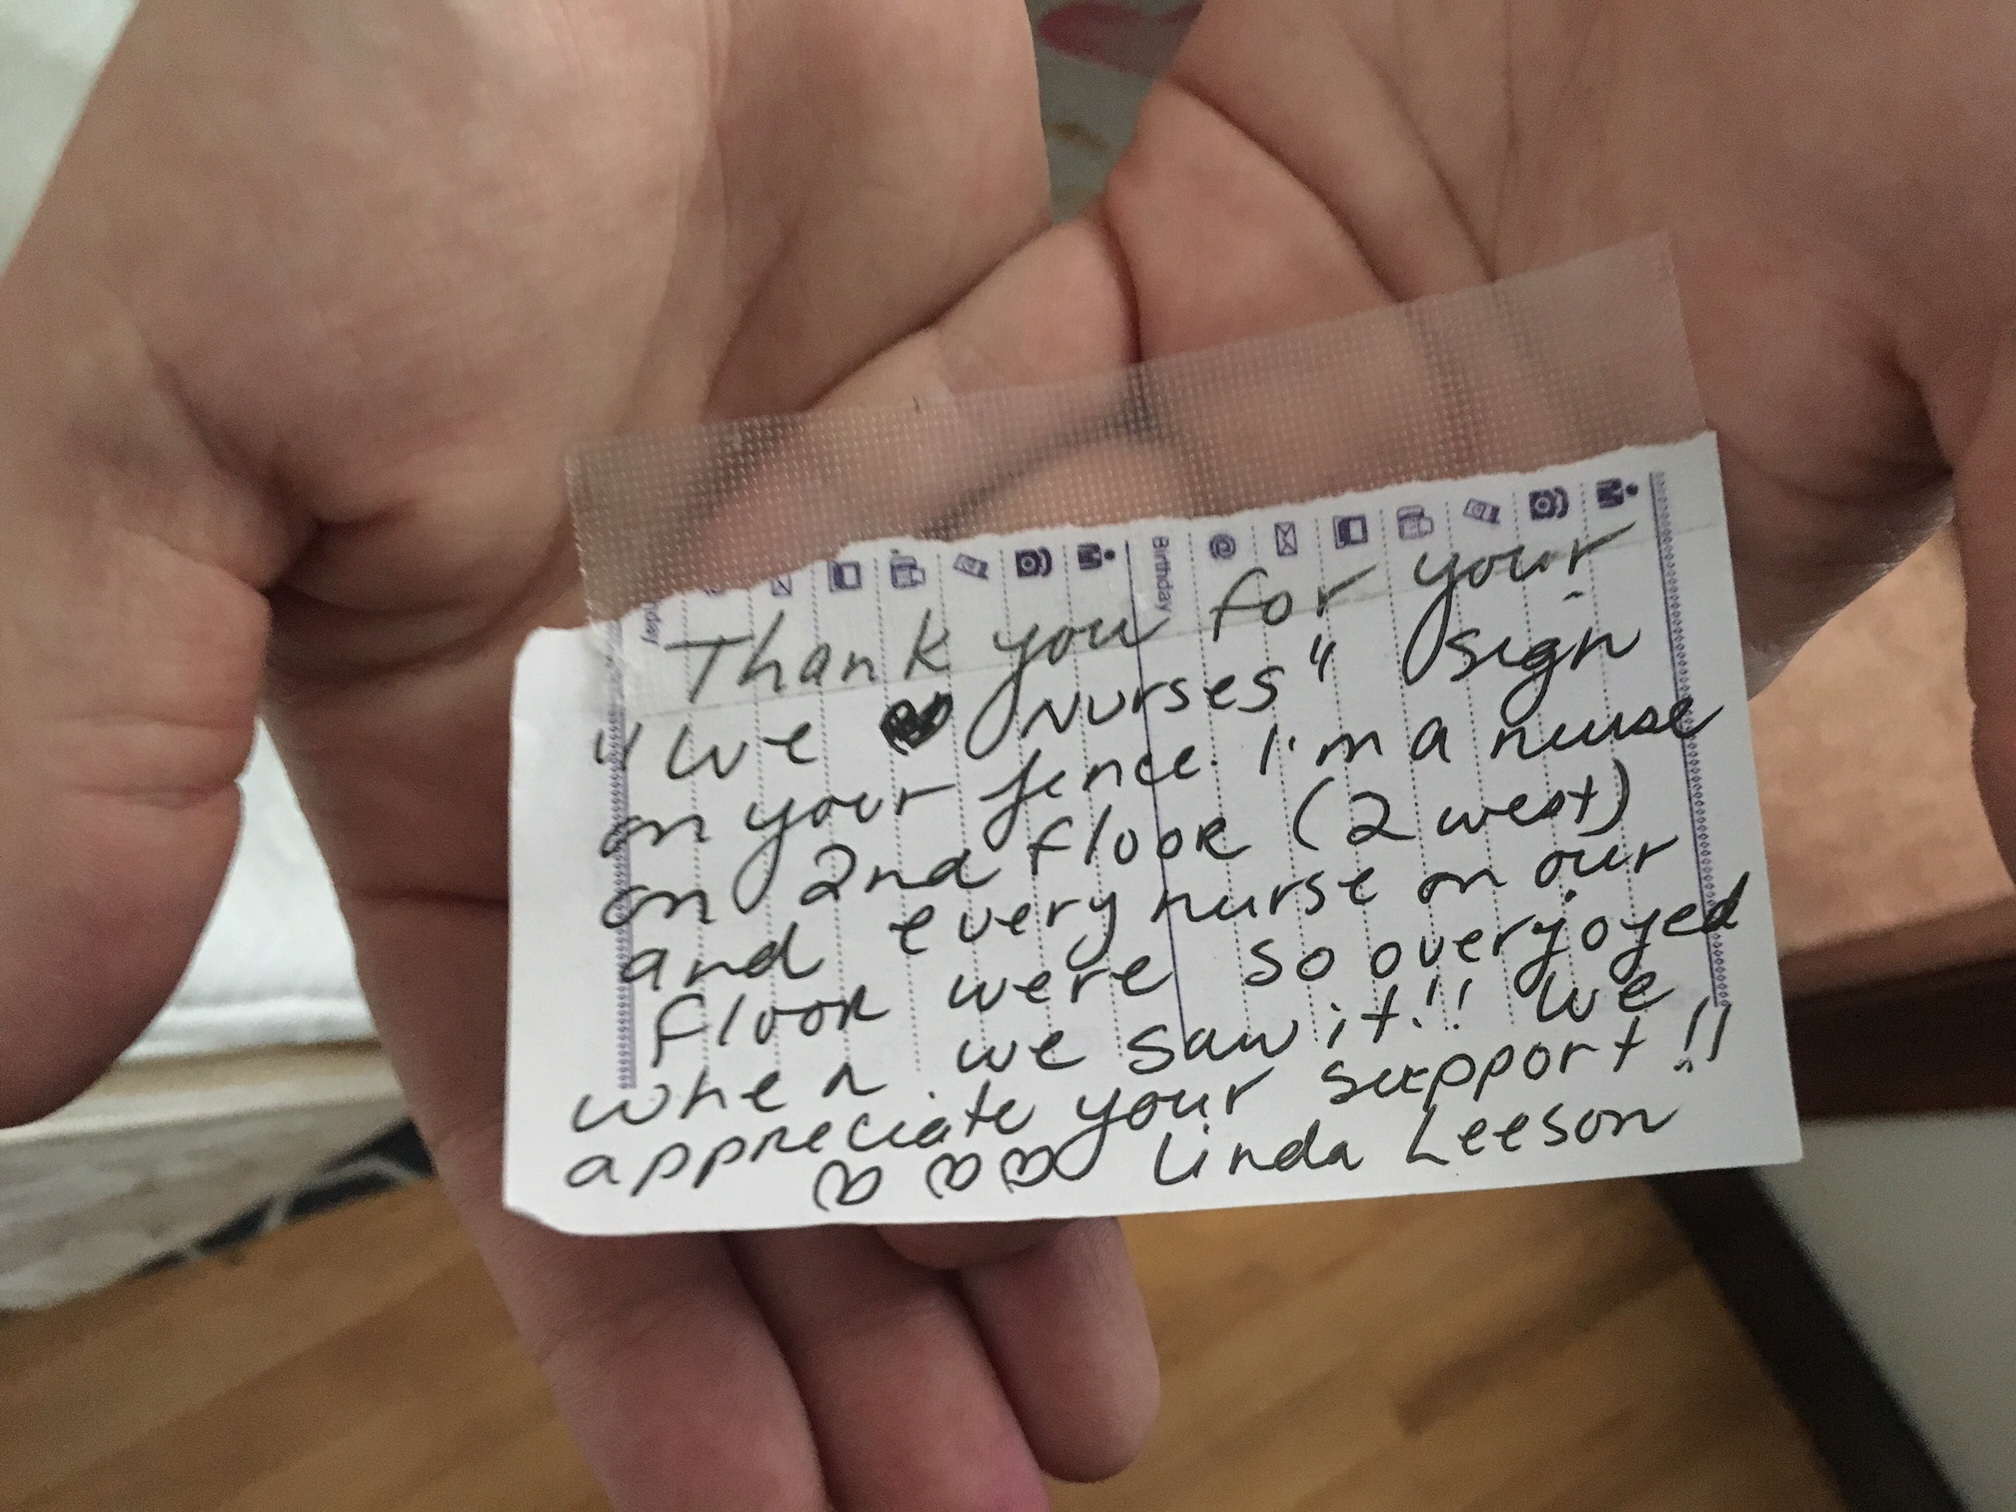 Birthday
Thank you for your
"We ♥ Nurses" sign
on your fence. I'm a nurse
on 2nd floor (2 west)
and every nurse on our
floor were so overjoyed
when we saw it!! We
appreciate your support!!
♡ ♡ ♡ Linda Leeson